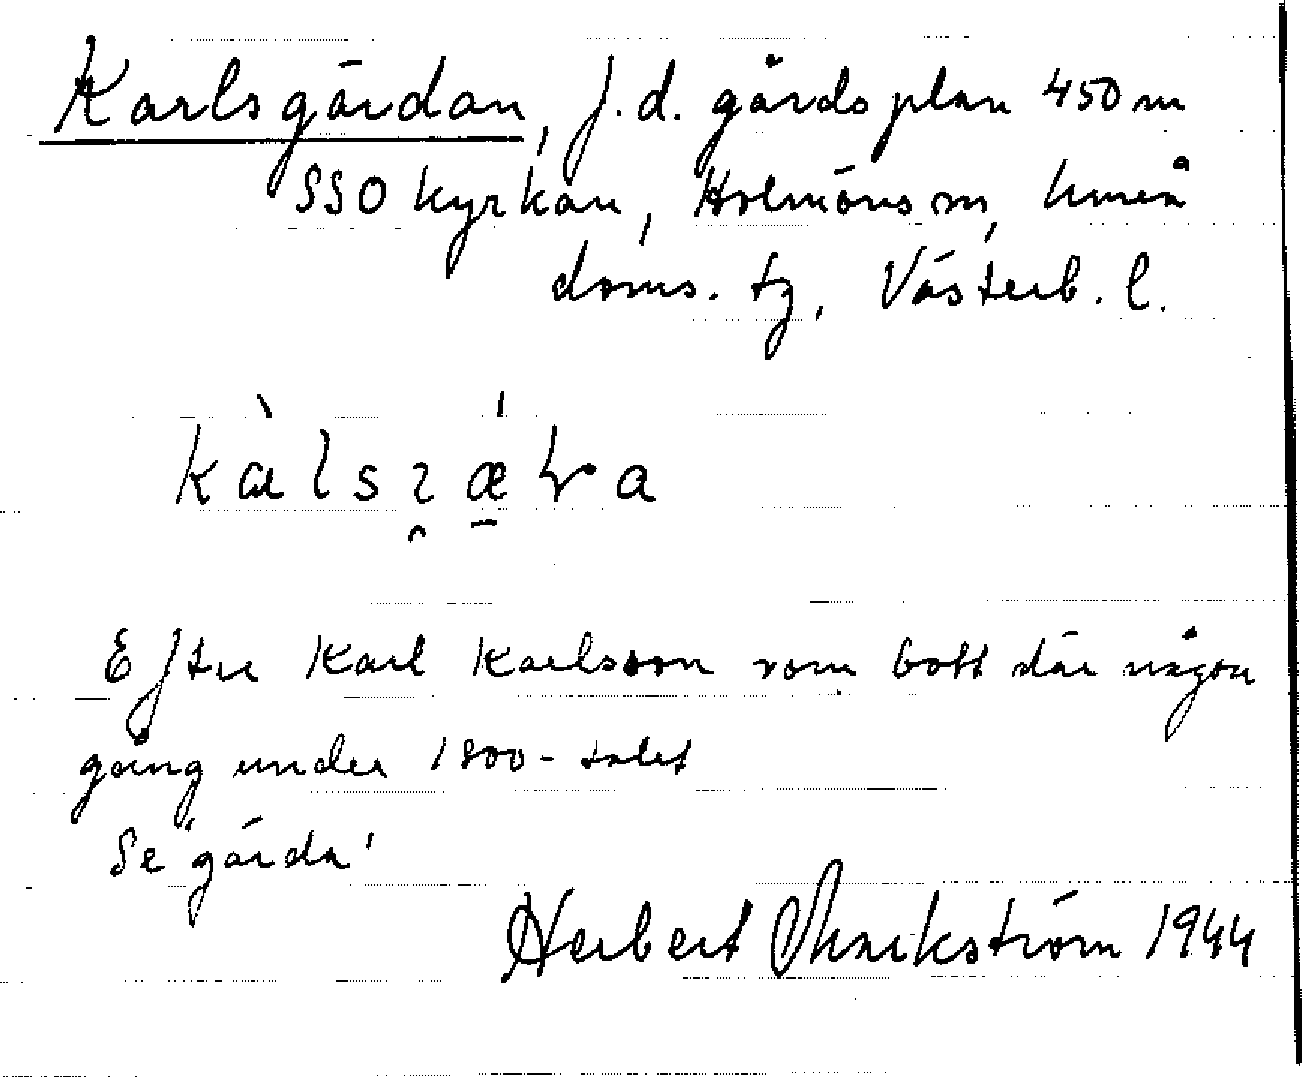 Karlsgärdan, f.d. gårdsplan 450 m
SSO kyrkan, Holmöns sn, Umeå
doms. tg, Västerb. l.
Efter Karl Karlsson som bott där någon
gång under 1800-talet
Se "gärda"
Herbert Markström 1944